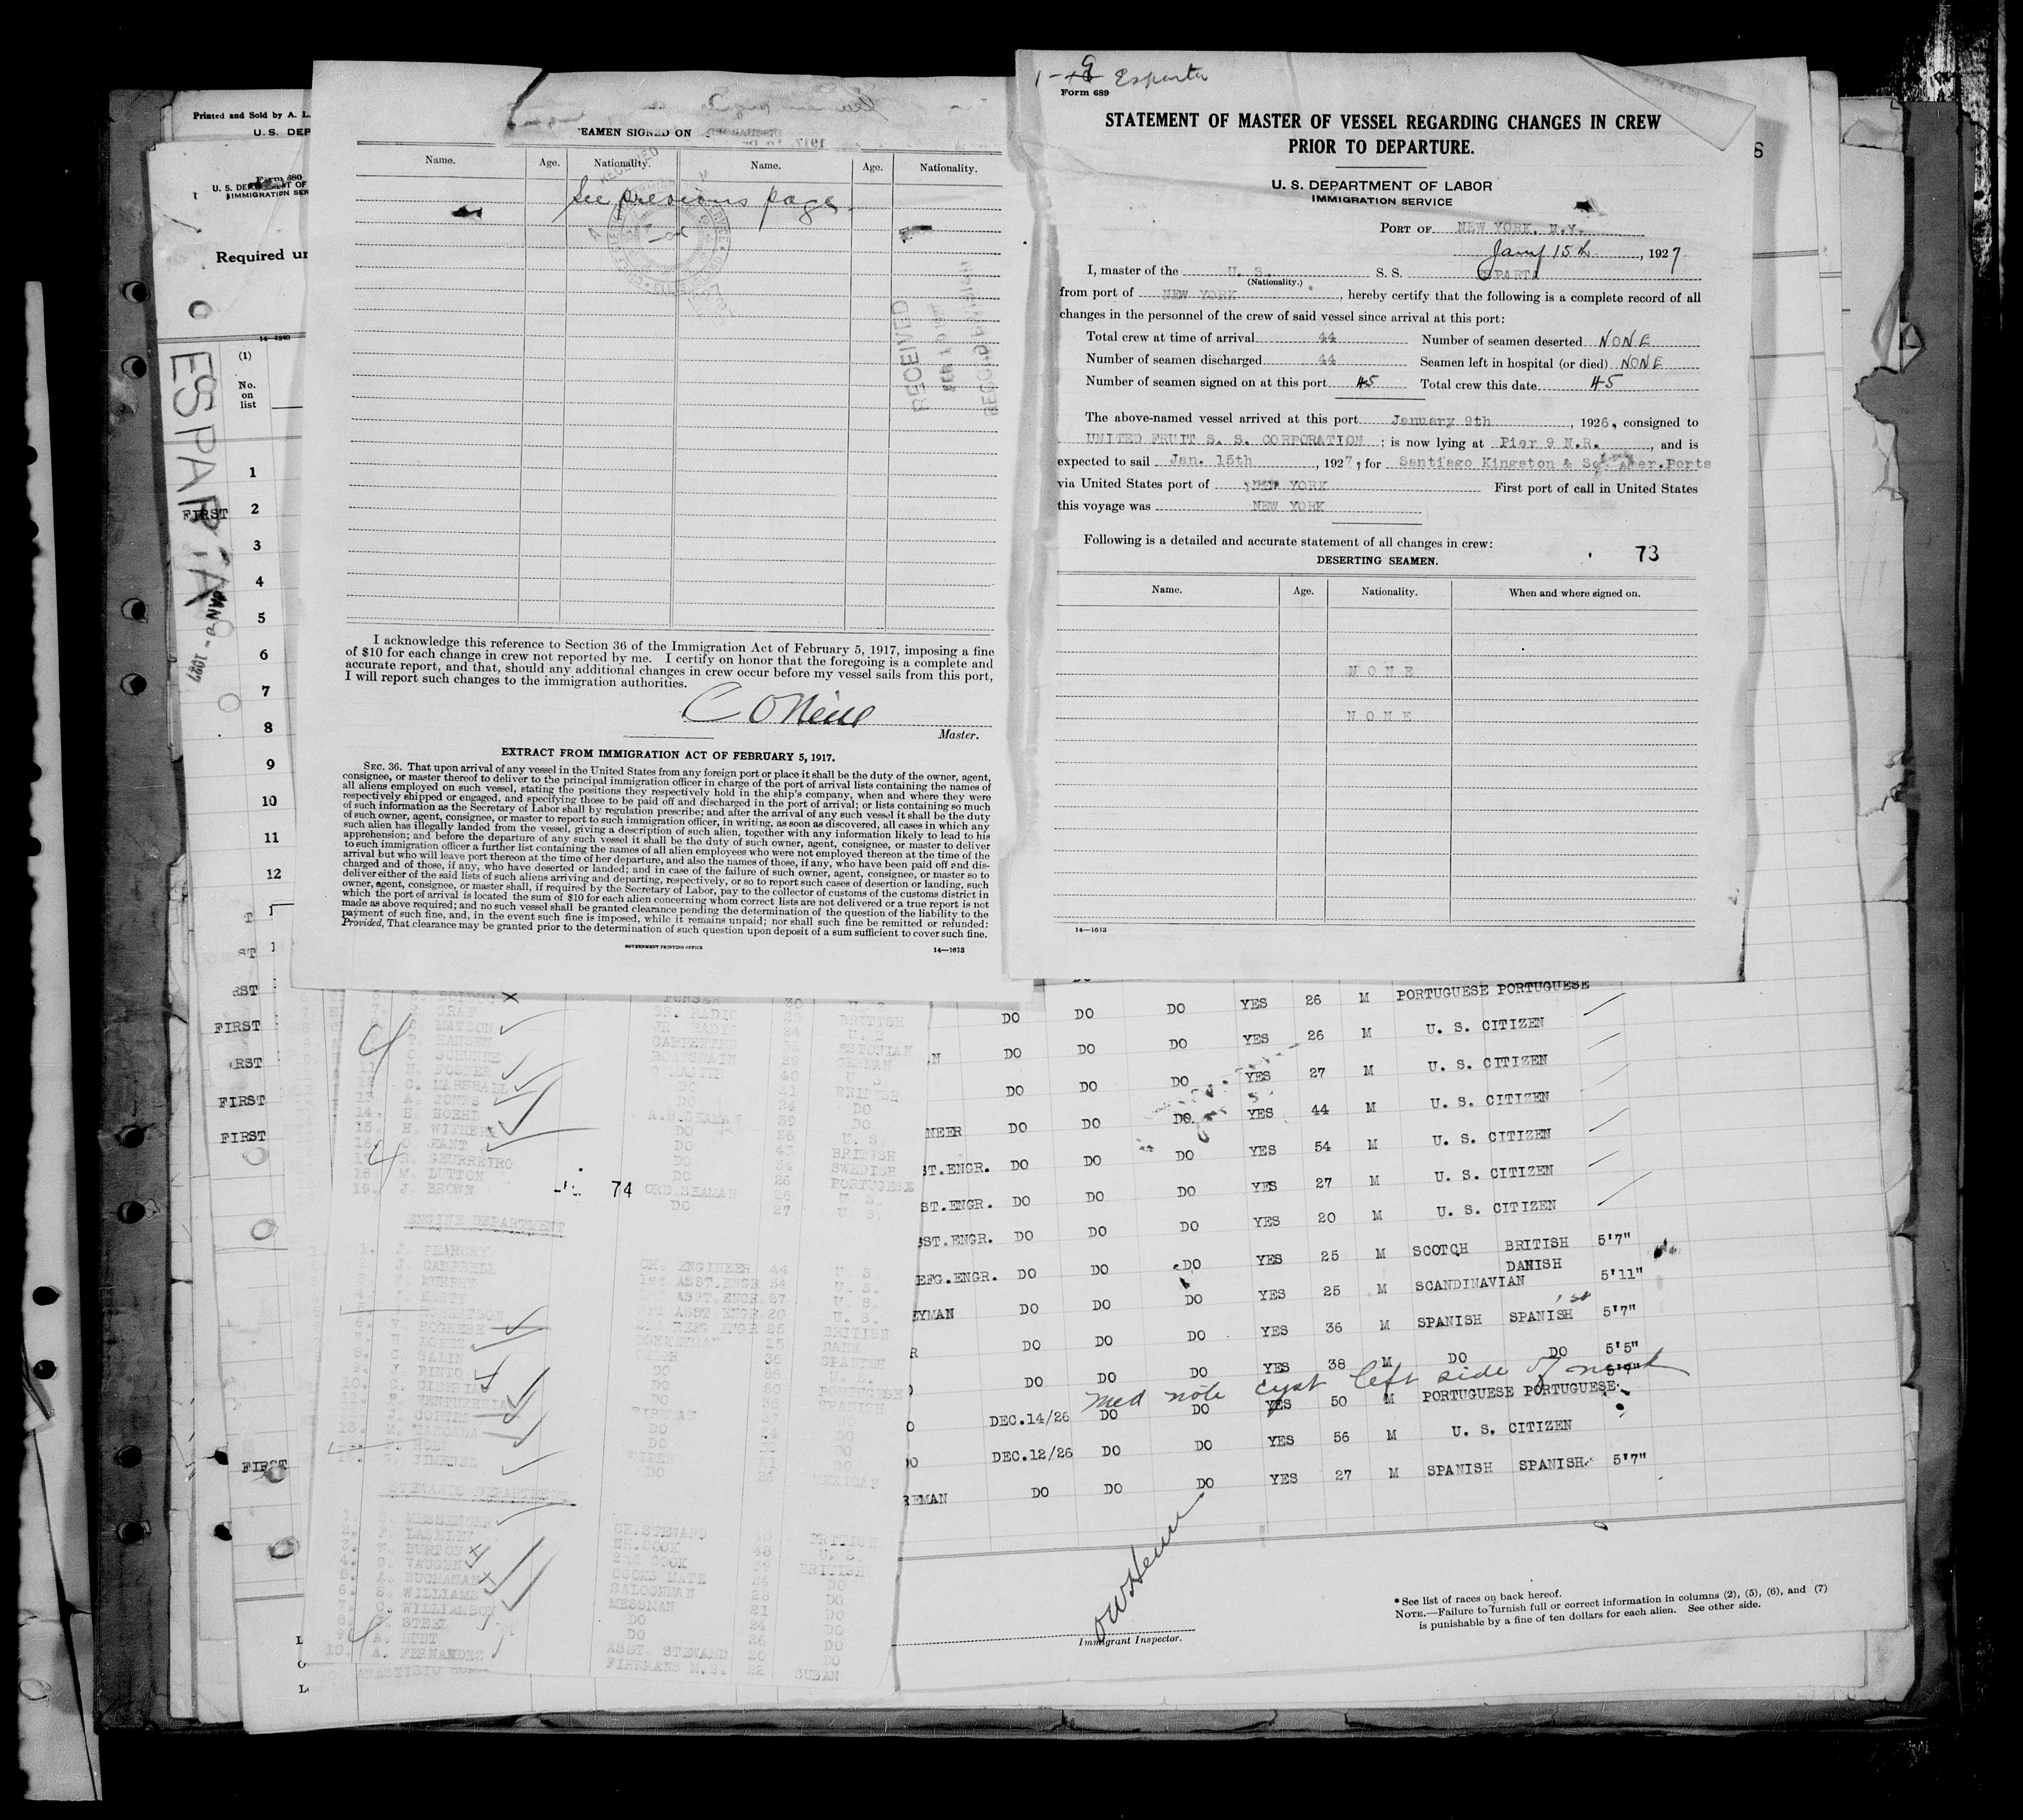 Printed and Sold by A. L.
U. S. DEP
Form 680
U. S. DEPARTMENT OF
IMMIGRATION SER
Required un
14-1240
(1)
No.
on
list
ESPARTA
JAN 9 - 1927
1
FIRST 2
3
4
5
6
7
8
9
10
11
12
ST
RST
FIRST
RST
FIRST
FIRST
FIRST
SEAMEN SIGNED ON
Name. Age. Nationality. Name. Age. Nationality.
See previous page.
RECEIVED
RECORD DIVISION
I acknowledge this reference to Section 36 of the Immigration Act of February 5, 1917, imposing a fine
of $10 for each change in crew not reported by me. I certify on honor that the foregoing is a complete and
accurate report, and that, should any additional changes in crew occur before my vessel sails from this port,
I will report such changes to the immigration authorities.
C O'Neill
Master.
EXTRACT FROM IMMIGRATION ACT OF FEBRUARY 5, 1917.
SEC. 36. That upon arrival of any vessel in the United States from any foreign port or place it shall be the duty of the owner, agent,
consignee, or master thereof to deliver to the principal immigration officer in charge of the port of arrival lists containing the names of
all aliens employed on such vessel, stating the positions they respectively hold in the ship's company, when and where they were
respectively shipped or engaged, and specifying those to be paid off and discharged in the port of arrival; or lists containing so much
of such information as the Secretary of Labor shall by regulation prescribe; and after the arrival of any such vessel it shall be the duty
of such owner, agent, consignee, or master to report to such immigration officer, in writing, as soon as discovered, all cases in which any
such alien has illegally landed from the vessel, giving a description of such alien, together with any information likely to lead to his
apprehension; and before the departure of any such vessel it shall be the duty of such owner, agent, consignee, or master to deliver
to such immigration officer a further list containing the names of all alien employees who were not employed thereon at the time of the
arrival but who will leave port thereon at the time of her departure, and also the names of those, if any, who have been paid off and dis-
charged and of those, if any, who have deserted or landed; and in case of the failure of such owner, agent, consignee, or master so to
deliver either of the said lists of such aliens arriving and departing, respectively, or so to report such cases of desertion or landing, such
owner, agent, consignee, or master shall, if required by the Secretary of Labor, pay to the collector of customs of the customs district in
which the port of arrival is located the sum of $10 for each alien concerning whom correct lists are not delivered or a true report is not
made as above required; and no such vessel shall be granted clearance pending the determination of the question of the liability to the
payment of such fine, and, in the event such fine is imposed, while it remains unpaid; nor shall such fine be remitted or refunded:
Provided, That clearance may be granted prior to the determination of such question upon deposit of a sum sufficient to cover such fine.
GOVERNMENT PRINTING OFFICE 14—1613
Esparta
Form 689
STATEMENT OF MASTER OF VESSEL REGARDING CHANGES IN CREW
PRIOR TO DEPARTURE.
U. S. DEPARTMENT OF LABOR
IMMIGRATION SERVICE
PORT OF NEW YORK, N.Y.
Jany 15th, 1927
I, master of the U. S. S. S. ESPARTA
(Nationality.)
from port of NEW YORK, hereby certify that the following is a complete record of all
changes in the personnel of the crew of said vessel since arrival at this port:
Total crew at time of arrival 44 Number of seamen deserted NONE
Number of seamen discharged 44 Seamen left in hospital (or died) NONE
Number of seamen signed on at this port 45 Total crew this date 45
The above-named vessel arrived at this port January 9th, 1926, consigned to
UNITED FRUIT S. S. CORPORATION; is now lying at Pier 9 N.R., and is
expected to sail Jan. 15th, 1927, for Santiago Kingston & So. Amer.Ports
via United States port of NEW YORK First port of call in United States
this voyage was NEW YORK
Following is a detailed and accurate statement of all changes in crew:
73
DESERTING SEAMEN.
Name. Age. Nationality. When and where signed on.
N O N E
N O N E
14—1613
PURSER 30 U. S.
GRAF SR. RADIO 25 BRITISH
MATSON JR. RADIO U. S.
HANSEN CARPENTER ESTONIAN
C. SCHUNKE BOATSWAIN 29 GERMAN
11. H. FOSTER 40 U. S.
12. C. MARSHALL DO 21 BRITISH
13. A. JONES 24 DO
14. H. HOEHL A.B.SEAMAN 39 DO
15. H. WITHER DO 26 U. S.
16. O. KANT DO 43 BRITISH
17. R. GEURREIRO DO 34 SWEDISH
18. M. LUTTON DO 26 PORTUGESE
19. J. BROWN ORD.SEAMAN 26 U. S.
DO 27 U. S.
74
ENGINE DEPARTMENT
1. J. PEARCEY
2. J. CAMPBELL CH. ENGINEER 44 U. S.
3. MURPHY 1st ASST.ENGR 54 U. S.
4. J. EASTY 2nd ASST.ENGR 27 U. S.
ROBERTSON 3rd ASST ENGR 20 U. S.
6. V. BOGREBE REFG ENGR 25 BRITISH
7. LOPEZ DONKEYMAN 25 DANE
8. C. GALIN OILER 36 SPANISH
9. F. PINTO DO 56 U. S.
10. C. CIBERIA DO 50 PORTUGESE
11. VENTUREIRA DO 38 SPANISH
J. CORTES FIREMAN 27
13. M. TABOADA DO DO
NOEL DO DO
G. JIMENEZ WIPER 21 DO
DO 26 MEXICAN
STEWARDS DEPARTMENT
1. S. MESSENGAR
2. F. LASHLEY CH.STEWARD 40 BRITISH
3. W. BURTON SH.COOK 48 U. S.
4. G. VAUSEN 2nd COOK 39 BRITISH
5. A. BUCHANAN COOKS MATE 24 DO
6. S. WILLIAMS SALOONMAN 28 DO
7. C. WILLIAMSON MESSMAN 21 DO
8. STEEL DO 24 DO
9. A. HUNT DO 26 DO
10. A. FERNANDEZ ASST. STEWARD 20 DO
ANASTISIO FIREMANS M.B. 22 CUBAN
DO DO DO YES 26 M PORTUGUESE PORTUGUESE
DO DO DO YES 26 M U. S. CITIZEN
DO DO DO YES 27 M U. S. CITIZEN
NEER DO DO DO YES 44 M U. S. CITIZEN
ST.ENGR. DO DO DO YES 54 M U. S. CITIZEN
ST.ENGR. DO DO DO YES 27 M U. S. CITIZEN
SST.ENGR. DO DO DO YES 20 M U. S. CITIZEN
EFG.ENGR. DO DO DO YES 25 M SCOTCH BRITISH 5'7"
EYMAN DO DO DO YES 25 M SCANDINAVIAN DANISH 5'11"
R DO DO DO YES 36 M SPANISH SPANISH 5'7"
DO DO DO YES 38 M DO DO 5'5"
med note cyst left side of neck
DEC.14/26 DO DO YES 50 M PORTUGUESE PORTUGUESE 5'7"
DEC.12/26 DO DO YES 56 M U. S. CITIZEN
REMAN DO DO DO YES 27 M SPANISH SPANISH 5'7"
Immigrant Inspector.
* See list of races on back hereof.
NOTE.—Failure to furnish full or correct information in columns (2), (5), (6), and (7)
is punishable by a fine of ten dollars for each alien. See other side.